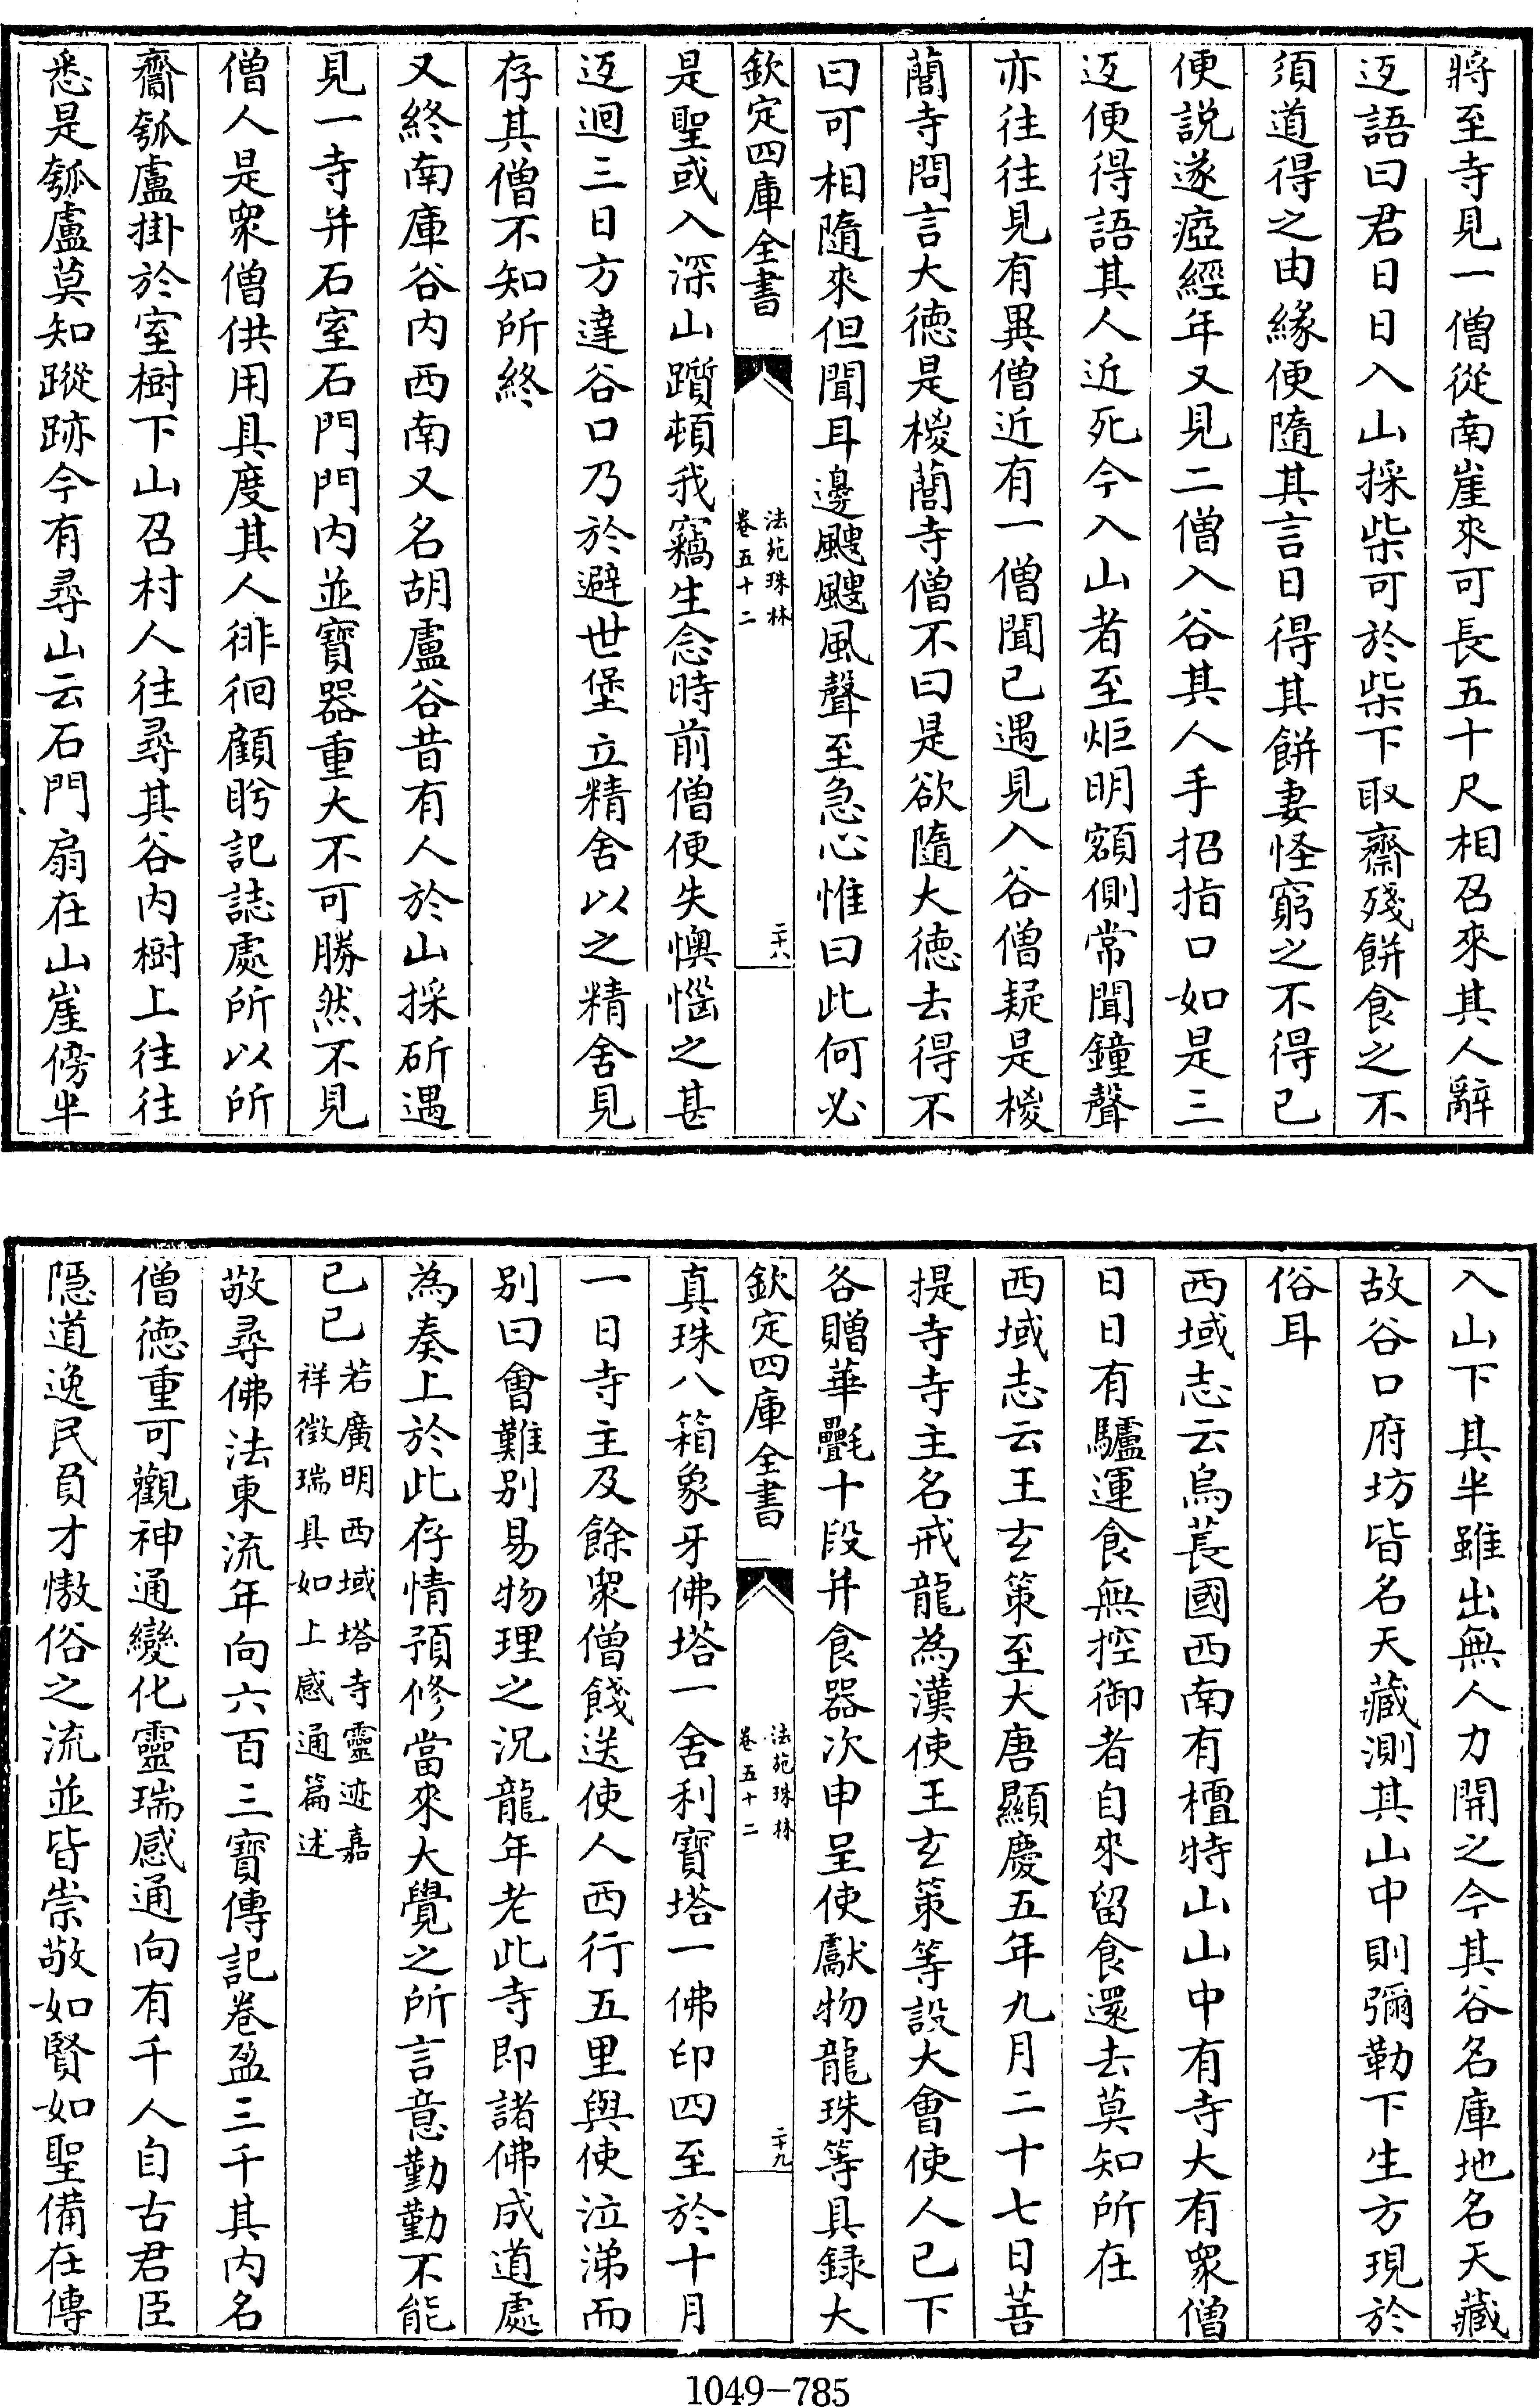 將至寺見一僧從南崖來可長五十尺相召來其人辭
返語曰君日日入山採柴可於柴下取齋殘餅食之不
須道得之由緣便隨其言日得其餅妻怪窮之不得已
便説遂瘂經年又見二僧入谷其人手招指口如是三
返便得語其人近死今入山者至炬明額側常聞鐘聲
亦往往見有異僧近有一僧聞已遇見入谷僧疑是椶
䕡寺問言大徳是椶䕡寺僧不曰是欲隨大徳去得不
曰可相隨來但聞耳邊颼颼風聲至急心惟曰此何必
欽定四庫全書
法苑珠林
卷五十二
二十八
是聖或入深山躓頓我竊生念時前僧便失懊惱之甚
返迴三日方達谷口乃於避世堡立精舍以之精舍見
存其僧不知所終
又終南庫谷内西南又名胡盧谷昔有人於山採斫遇
見一寺并石室石門門内並寶器重大不可勝然不見
僧人是衆僧供用具度其人徘徊顧眄記誌處所以所
齎瓠盧掛於室樹下山召村人往尋其谷内樹上往往
悉是瓠盧莫知蹤跡今有尋山云石門扇在山崖傍半
入山下其半雖出無人力開之今其谷名庫地名天藏
故谷口府坊皆名天藏測其山中則彌勒下生方現於
俗耳
西域志云烏萇國西南有檀特山山中有寺大有衆僧
日日有驢運食無控御者自來留食還去莫知所在
西域志云王玄策至大唐顯慶五年九月二十七日菩
提寺寺主名戒龍為漢使王玄策等設大會使人已下
各贈華㲲十段并食器次申呈使獻物龍珠等具録大
欽定四庫全書
法苑珠林
卷五十二
二十九
真珠八箱象牙佛塔一舍利寶塔一佛印四至於十月
一日寺主及餘衆僧餞送使人西行五里與使泣涕而
别曰會難别易物理之況龍年老此寺即諸佛成道處
為奏上於此存情預修當來大覺之所言意勤勤不能
已已
若廣明西域塔寺靈迹嘉
祥徵瑞具如上感通篇述
敬尋佛法東流年向六百三寶傳記卷盈三千其内名
僧徳重可觀神通變化靈瑞感通向有千人自古君臣
隱道逸民負才慠俗之流並皆崇敬如賢如聖備在傳
1049-785